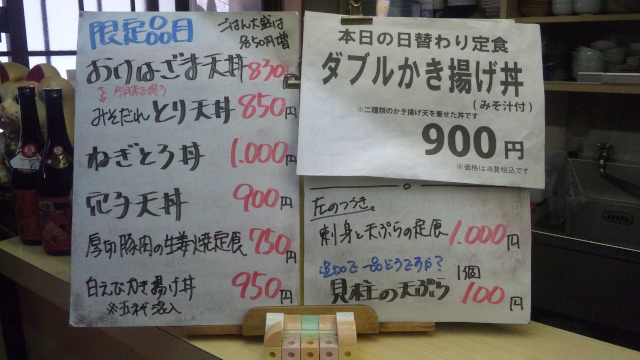 限定品目
ごはん大盛は
各50円増
おけはざま天丼 830円
今月末で終り
みそだれとり天丼 850円
ねぎとろ丼 1.000円
穴子天丼 900円
厚切豚肉の生姜焼定食 750円
白えびかき揚げ丼 950円
※五代目入
本日の日替わり定食
ダブルかき揚げ丼
(みそ汁付)
※二種類のかき揚げ天を乗せた丼です
900円
※価格は消費税込です
左のつづき。
刺身と天ぷらの定食 1.000円
追加で一品どうですか?
1個
貝柱の天ぷら 100円